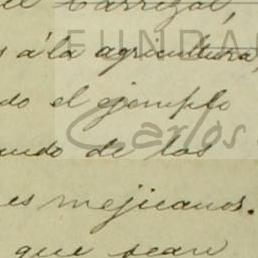 el Carrizal,
s á la agricultura,
do el ejemplo
ando de los
es mejicanos.
que sean
FUNDA
Carlos